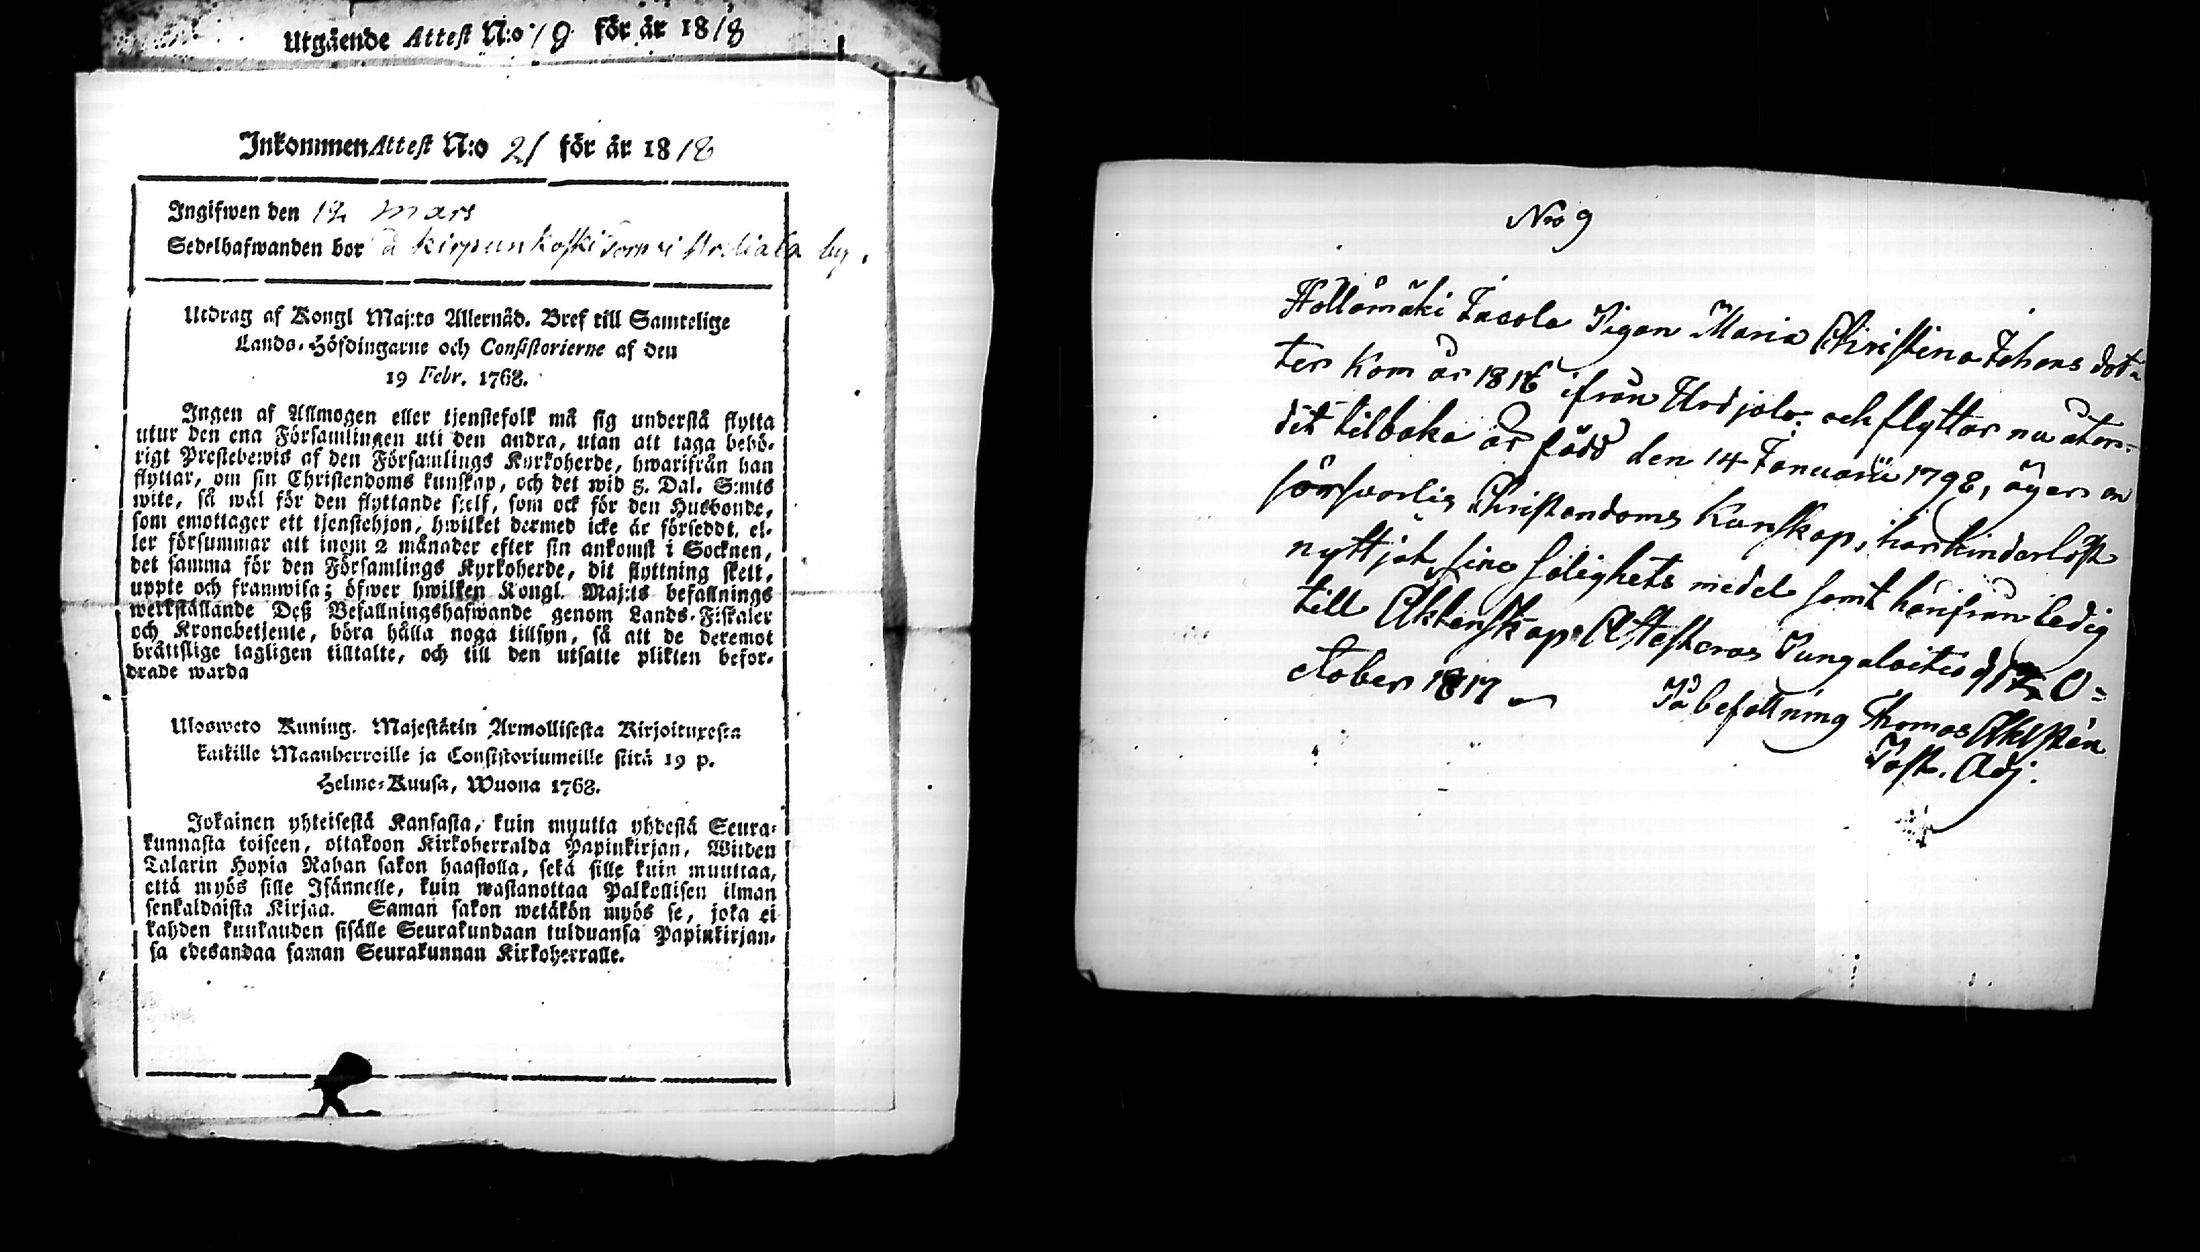 Utgående Attest N:o 19 för år 1818
Inkommen Attest N:o 21 för år 1818
Ingifwen den 12 Mars
Sedelhafwanden bor å Kirpunkoski Torp i by.
Utdrag af Kongl Maj:ts Allernåd. Bref till Samtelige
Lands-Höfdingarne och Consistorierne af den
19 Febr. 1768.
Ingen af Allmogen eller tjenstefolk må sig understå flytta
utur den ena Församlingen uti den andra, utan att taga behö-
rigt Prestebewis af den Församlings Kyrkoherde, hwarifrån han
flyttar, om sin Christendoms kunskap, och det wid 5. Dal. S:mts
wite, så wäl för den flyttande sjelf, som ock för den Husbonde,
som emottager ett tjenstehjon, hwilket dermed icke är försedt, el-
ler försummar att inom 2 månader efter sin ankomst i Socknen,
det samma för den Församlings Kyrkoherde, dit flyttning skett,
uppte och framwisa; öfwer hwilken Kongl. Maj:ts befallnings
werkställande Deß Befallningshafwande genom Lands-Fiskaler
och Kronobetjente, böra hålla noga tillsyn, så att de deremot
bråttslige lagligen tilltalte, och till den utsatte plikten befor-
drade warda
Ulosweto Kuning. Majestätin Armollisesta Kirjoituxesta
kaikille Maanherroille ja Consistoriumeille siitä 19 p.
Helme-Kuusa, Wuona 1768.
Jokainen yhteisestä Kansasta, kuin muutta yhdestä Seura-
kunnasta toiseen, ottakoon Kirkoherralda Papinkirjan, Wiiden
Talarin Hopia Rahan sakon haastolla, sekä sille kuin muuttaa,
että myös sille Isännelle, kuin wastanottaa Palkollisen ilman
senkaldaista Kirjaa. Saman sakon wetäkön myös se, joka ei
kahden kuukauden sisälle Seurakundaan tulduansa Papinkirjan-
sa edesandaa saman Seurakunnan Kirkoherralle.
Nro 9
Höllömäki Jacola Pigan Maria Christina Johans dot-
ter kom år 1816 ifrån Urdjala; och flyttar nu åter-
dit tilbaka är född den 14 Januarii 1798, äger en
försvarlig Christendoms Kunskap, har hinderlöst
nyttjat sine salighets medel samt härifrån ledig
till Äktenskap. Attesteras Pungalaitio d O-
ctober 1817
På befallning Thomas Ahlstén
Past. Adj: